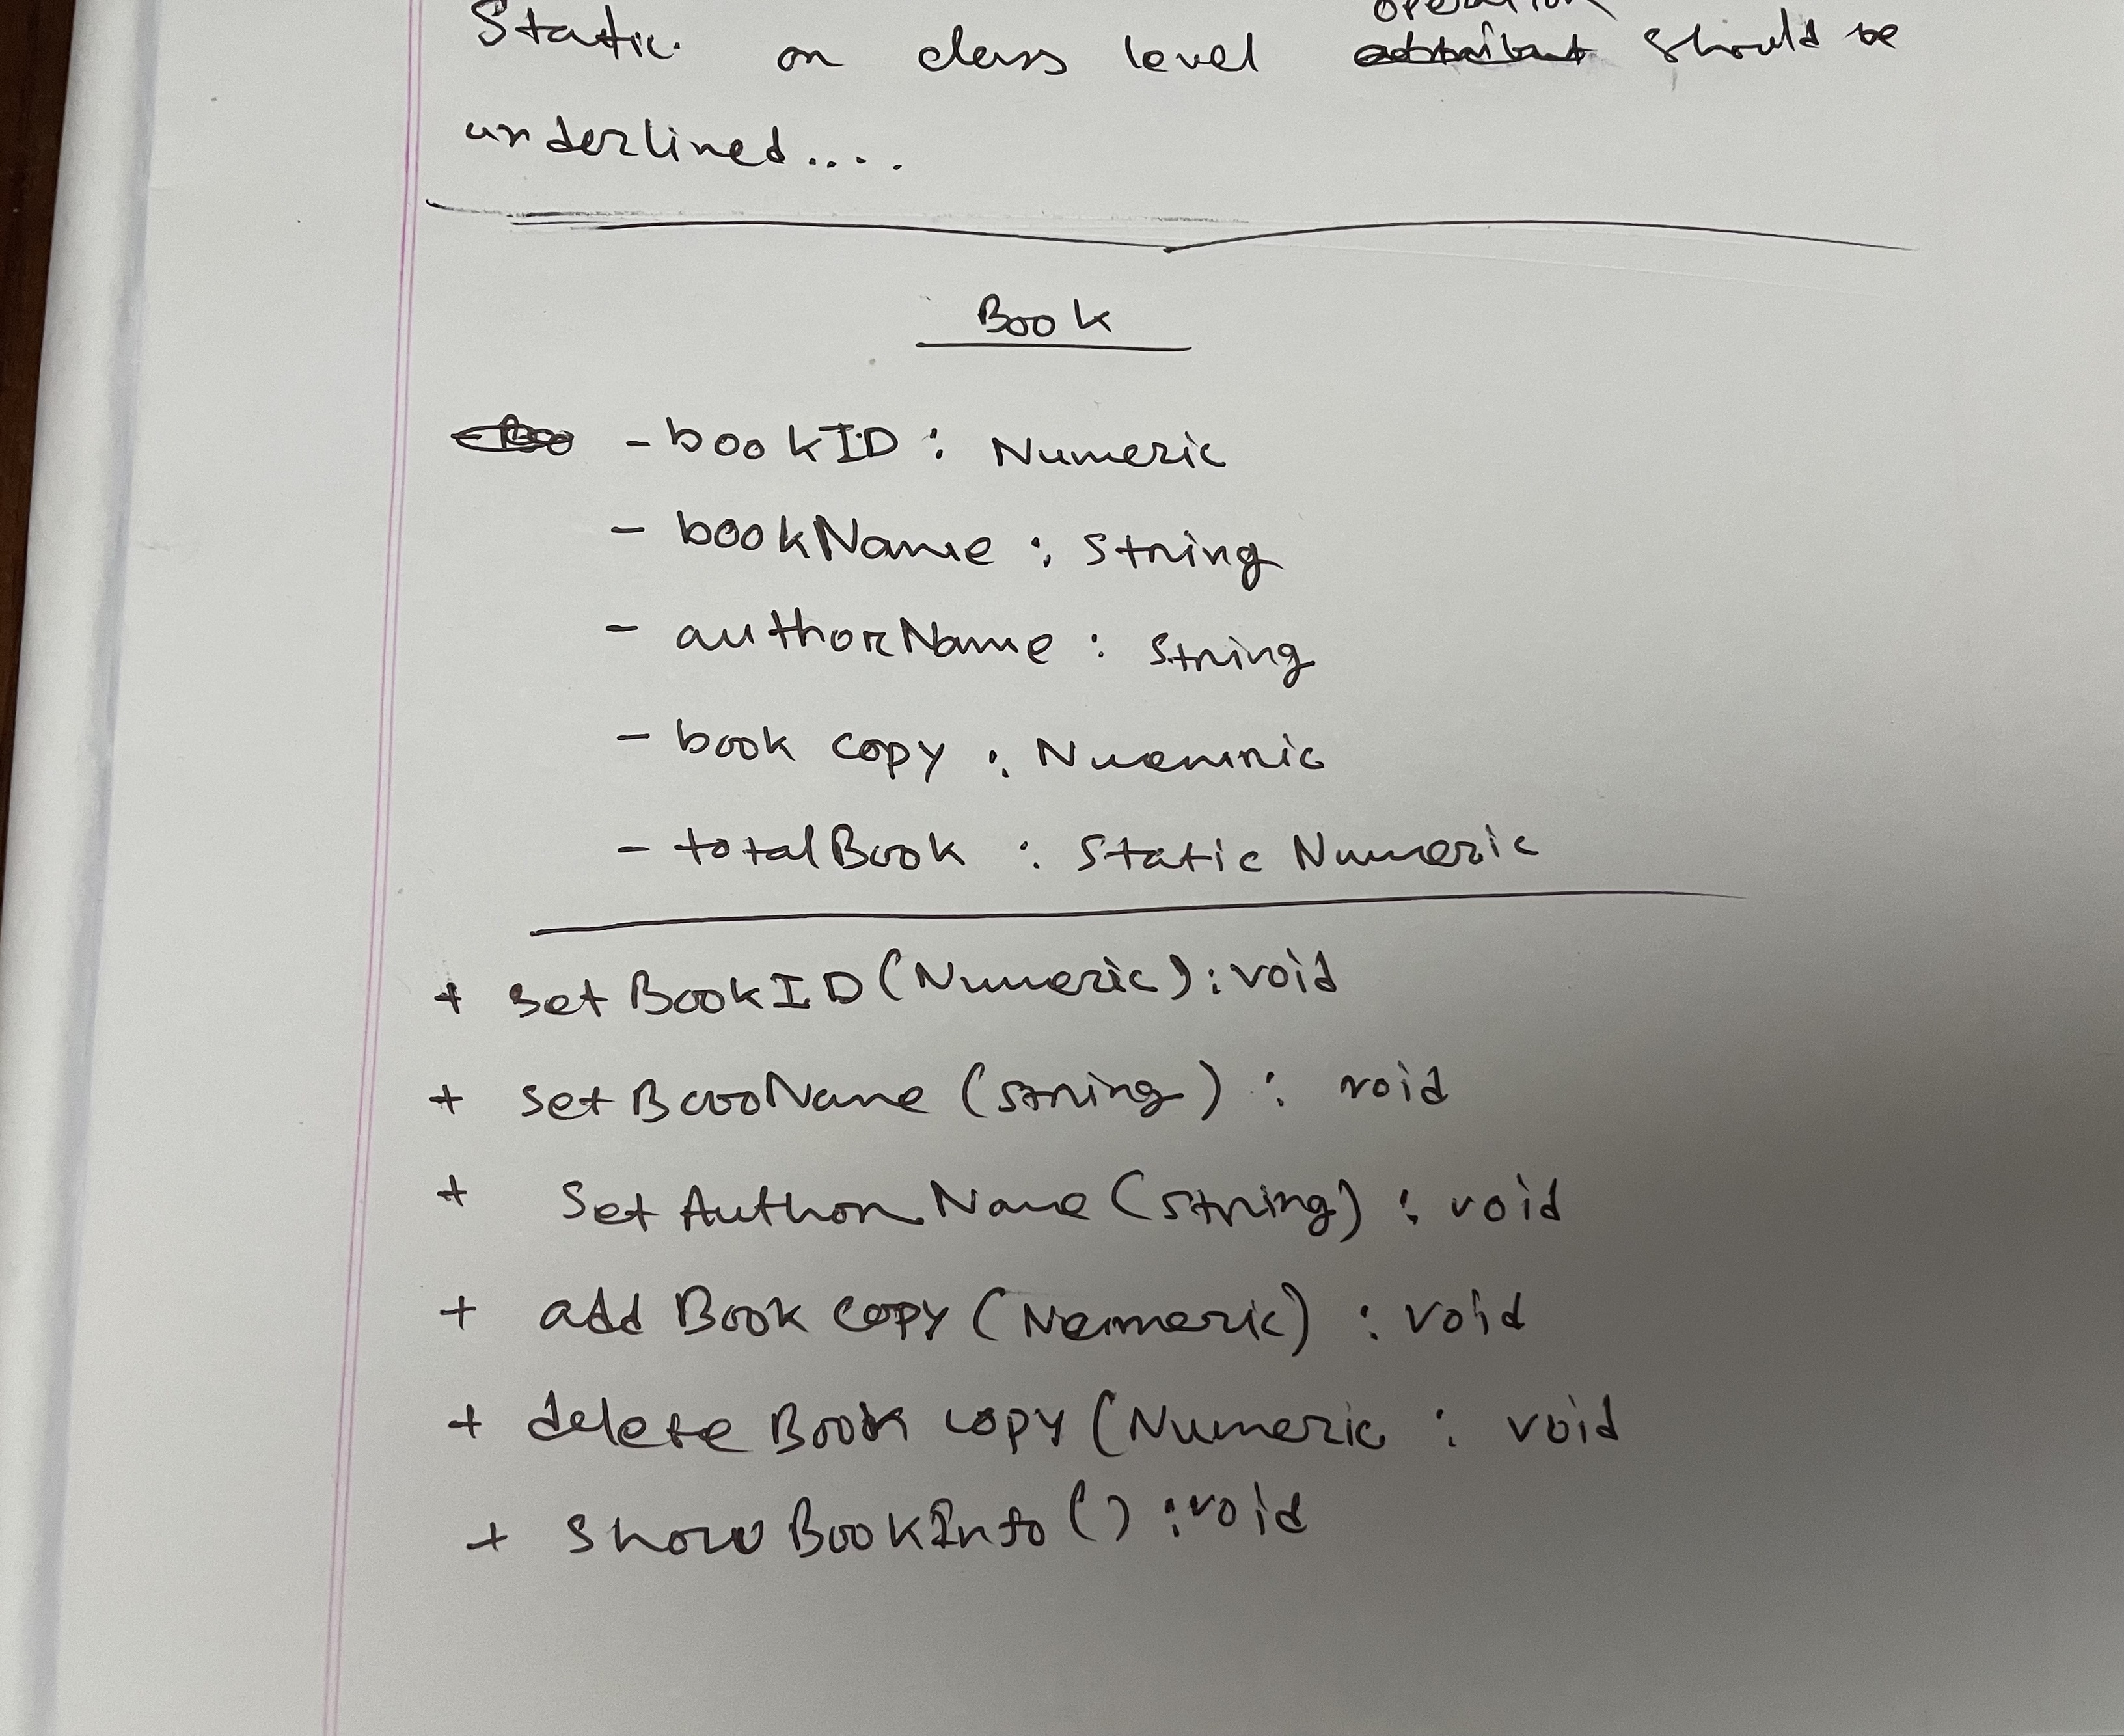 operation
Static on class level attribut should be
underlined....
Book
- bookID : Numeric
- bookName : String
- authorName : String
- book copy : Nuemric
- totalBook : Static Numeric
+ setBookID(Numeric) : void
+ setBooName (string) : void
+ SetAuthor Name (String) : void
+ add Book copy (Numeric) : void
+ delete Book copy (Numeric : void
+ showBookInfo () : void